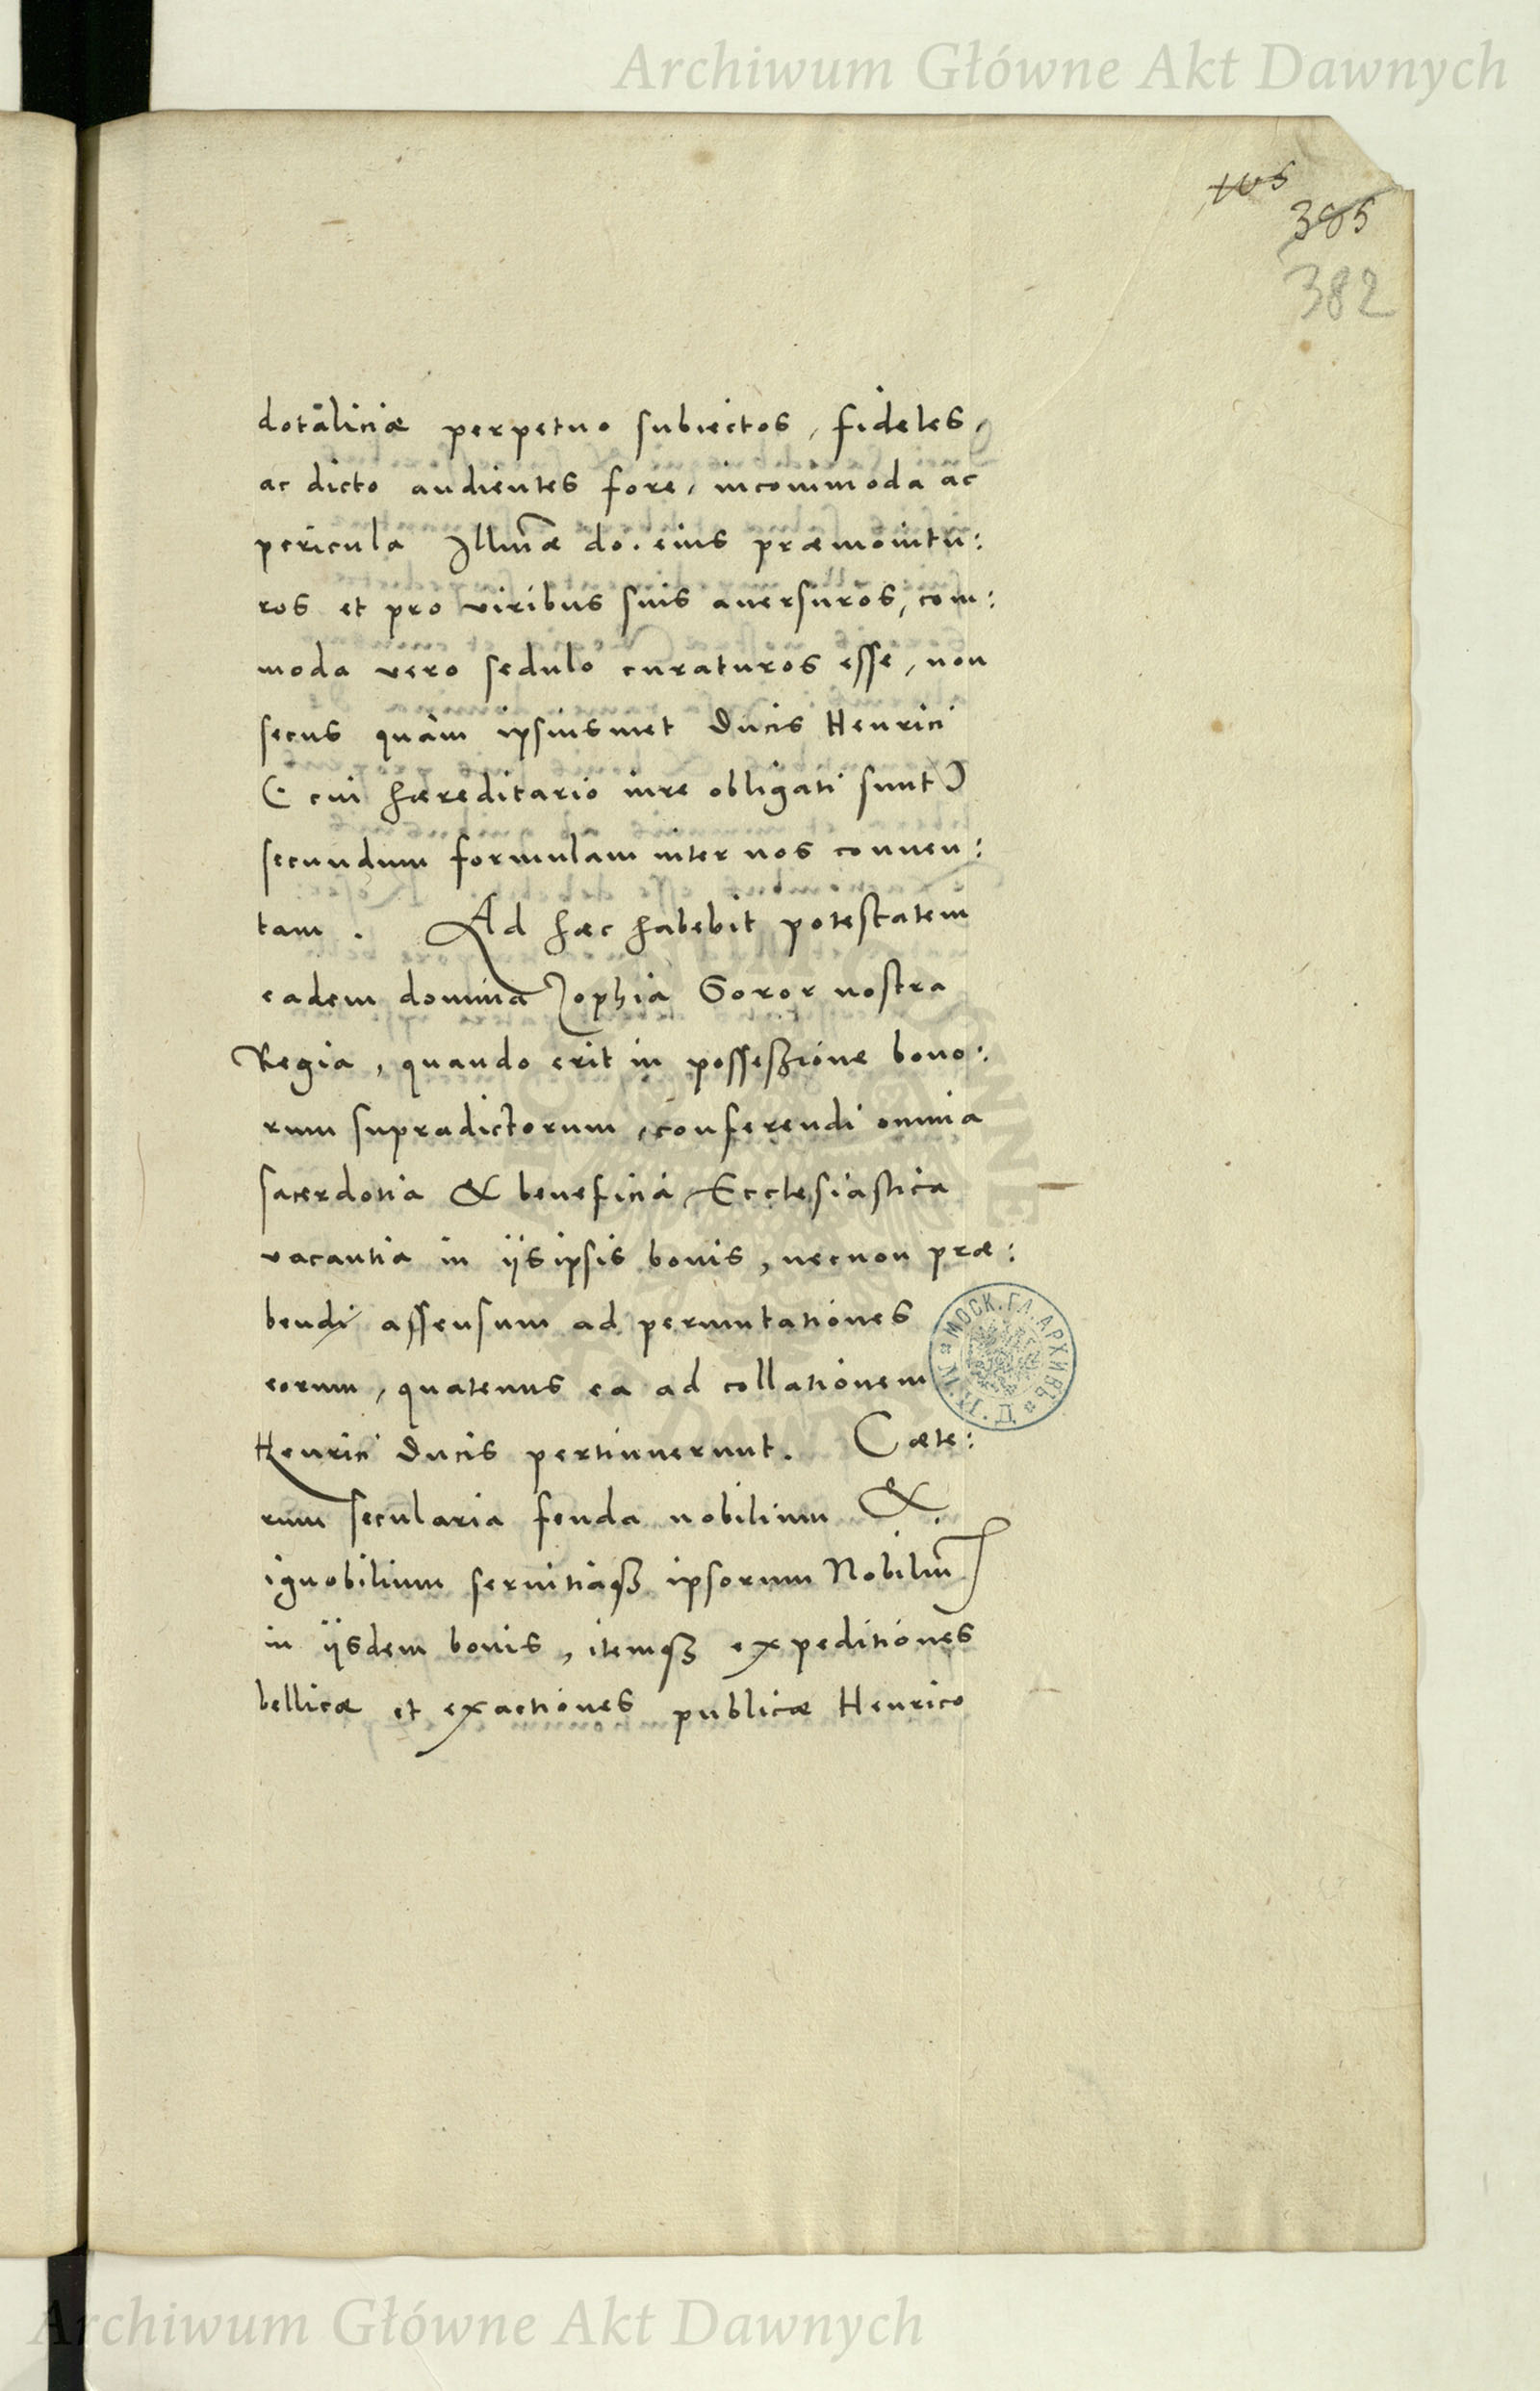 Archiwum Główne Akt Dawnych
105
385
382
dotaliciæ perpetuo subiectos, fideles,
ac dicto audientes fore, incommoda ac
pericula Illmæ do. eius præmonitu:
ros et pro viribus suis auersuros, com:
moda vero sedulo curaturos esse, non
secus quàm ipsiusmet Ducis Henrici
(: cui hæreditario iure obligati sunt)
secundum formulam inter nos conuen:
tam. Ad hæc habebit potestatem
eadem domina Zophia Soror nostra
Regia, quando erit in possessione bono:
rum supradictorum, conferendi omnia
sacerdotia & beneficia Ecclesiastica
vacantia in ijs ipsis bonis, necnon præ:
bendi assensum ad permutationes
eorum, quatenus ea ad collationem
Henrici Ducis pertinuerunt. Cæte:
rum secularia feuda nobilium &
ignobilium seruitiaqȝ ipsorum Nobilium
in ijsdem bonis, itemqȝ expeditiones
bellicæ et exactiones publicæ Henrico
МОСК. ГЛ. АРХИВЪ
Archiwum Główne Akt Dawnych